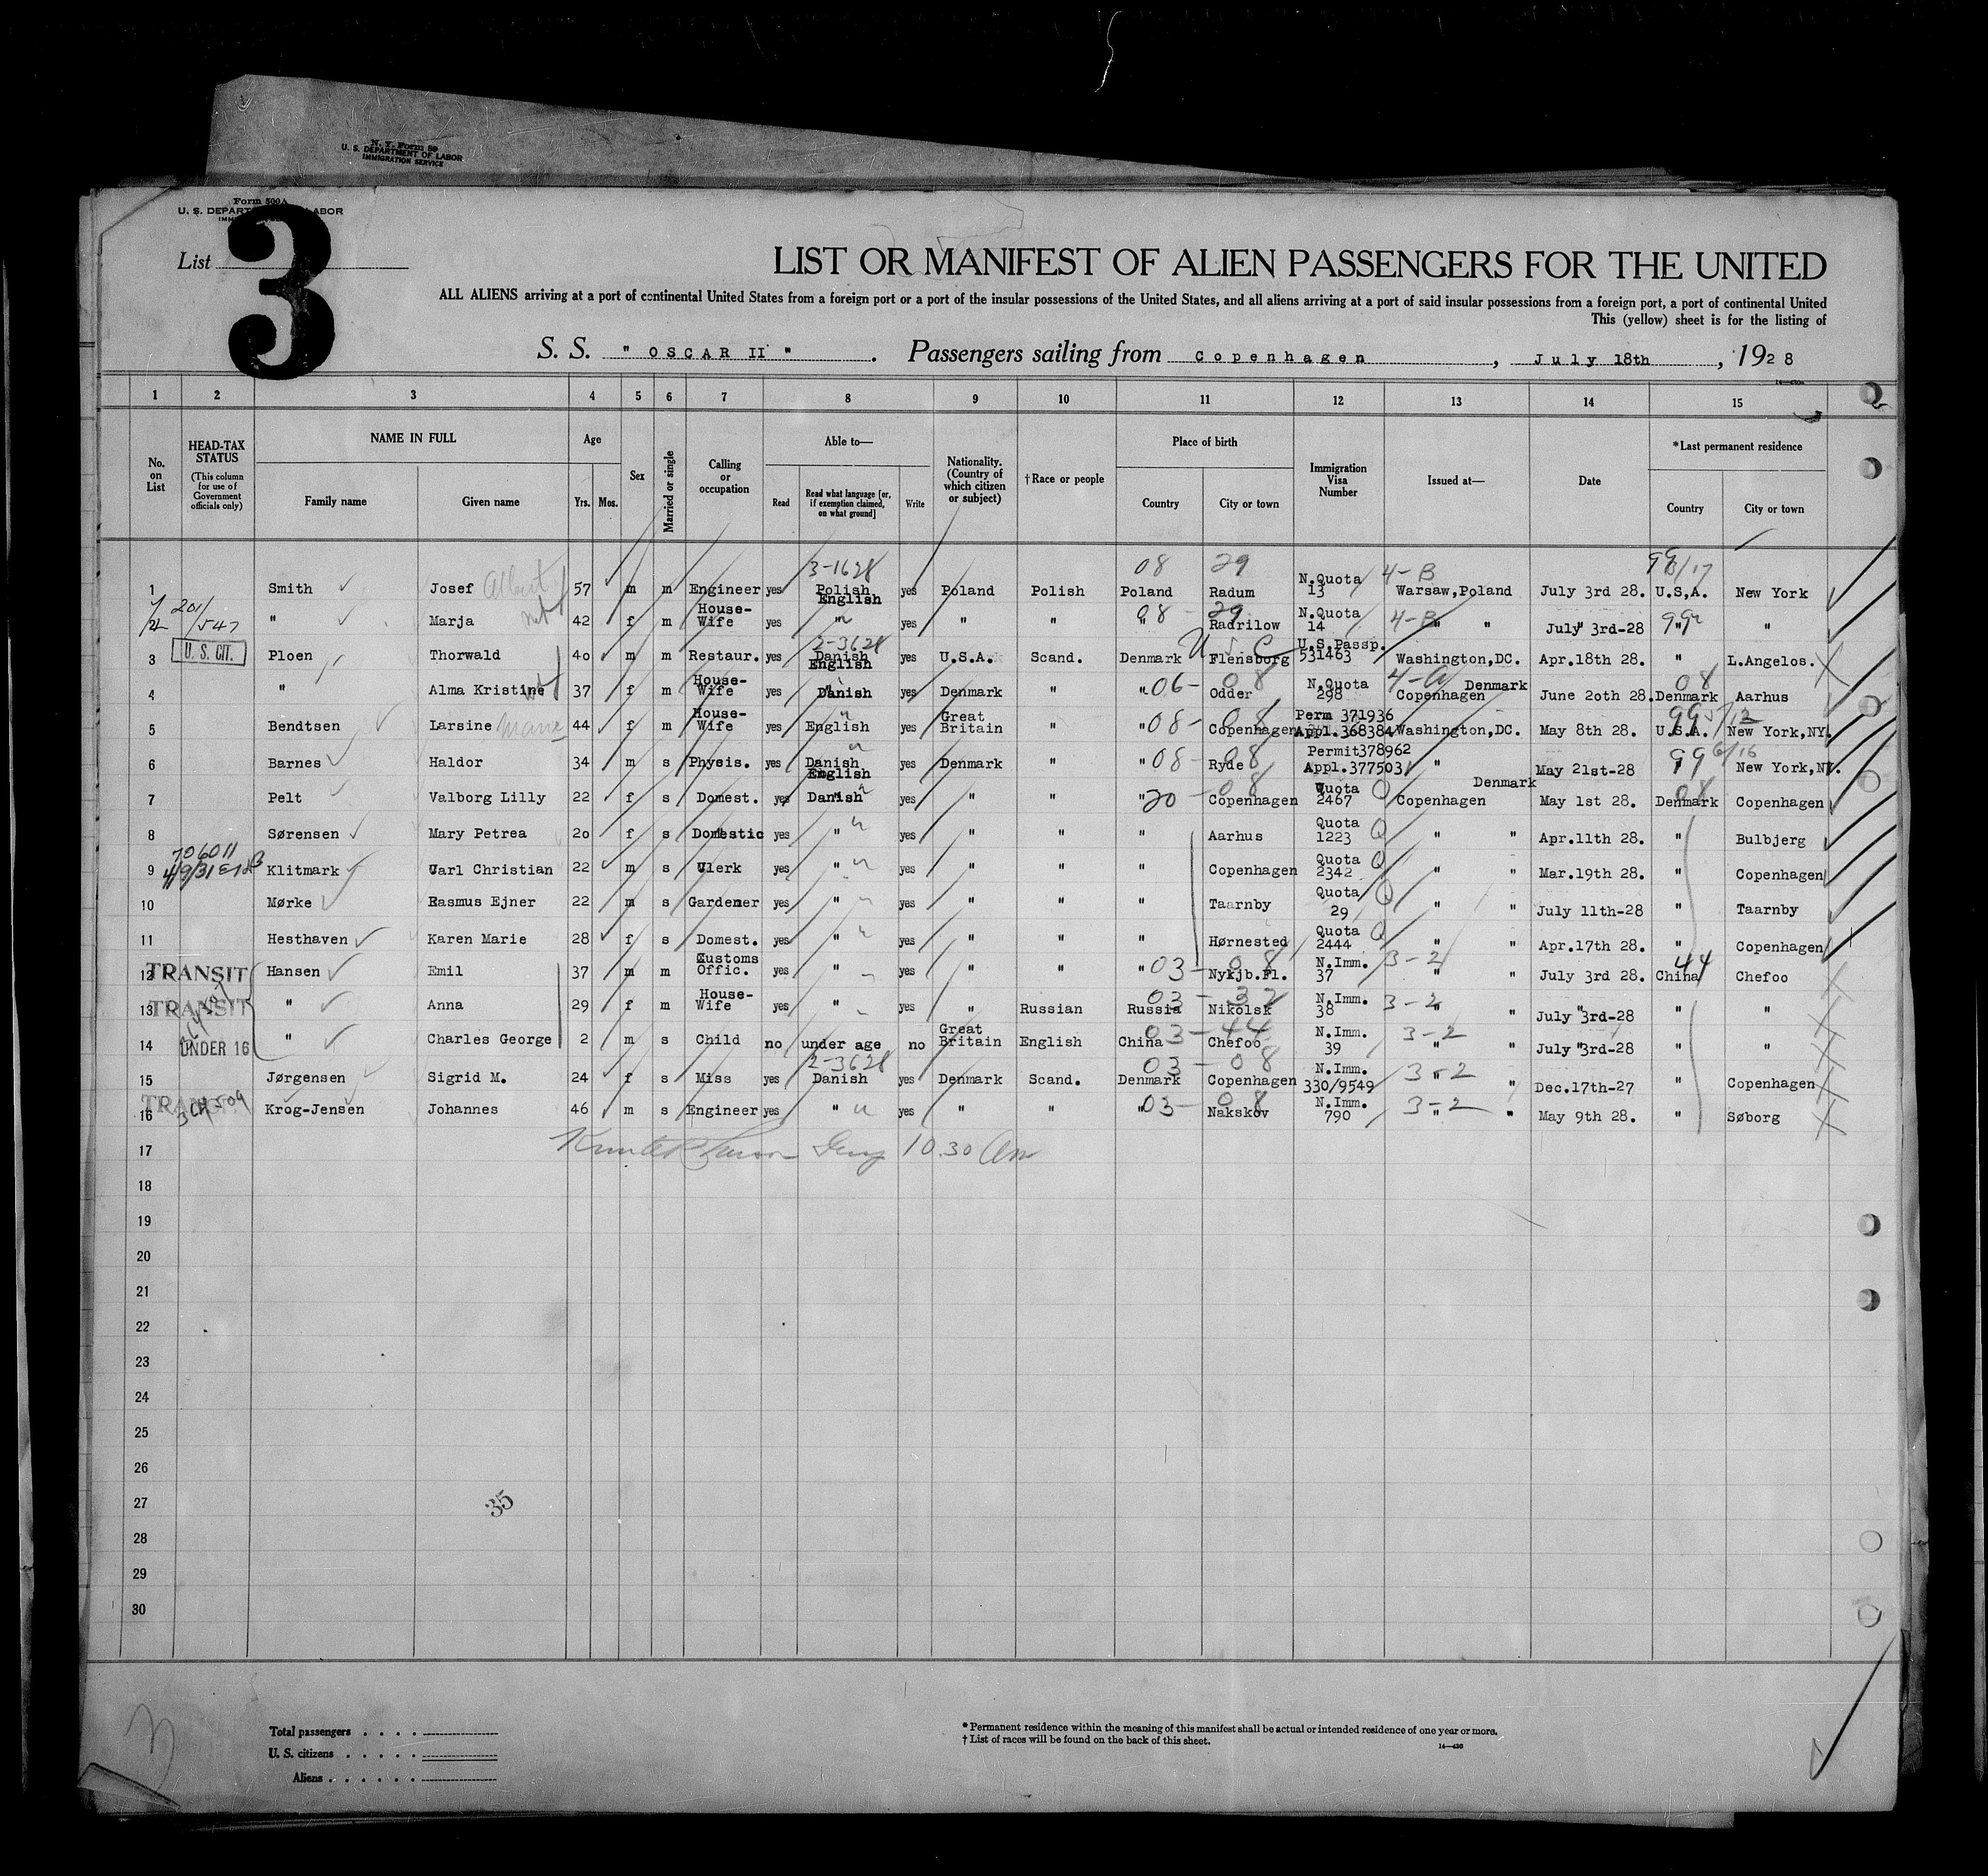 N. Y. Form 89
U. S. DEPARTMENT OF LABOR
IMMIGRATION SERVICE
Form 500A
U. S. DEPARTMENT OF LABOR
List 3
LIST OR MANIFEST OF ALIEN PASSENGERS FOR THE UNITED
ALL ALIENS arriving at a port of continental United States from a foreign port or a port of the insular possessions of the United States, and all aliens arriving at a port of said insular possessions from a foreign port, a port of continental United
This (yellow) sheet is for the listing of
S. S. " OSCAR II " . Passengers sailing from Copenhagen , July 18th , 1928
1 2 3 4 5 6 7 8 9 10 11 12 13 14 15
No. on List HEAD-TAX STATUS (This column for use of Government officials only) NAME IN FULL Family name Given name Age Yrs. Mos. Sex Married or single Calling or occupation Able to— Read Read what language [or, if exemption claimed, on what ground] Write Nationality. (Country of which citizen or subject) †Race or people Place of birth Country City or town Immigration Visa Number Issued at— Date *Last permanent residence Country City or town
3-1628 08 29 99 8/17
1 Smith Josef Albert 57 m m Engineer yes Polish English yes Poland Polish Poland Radum N.Quota 13 4-B Warsaw,Poland July 3rd 28. U.S,A. New York
2 201/547 " Marja 42 f m House-Wife yes " yes " " " 08 - 29 Radrilow N.Quota 14 4-B " " July 3rd-28 99 " "
3 U. S. CIT. Ploen Thorwald 40 m m Restaur. yes 2-3628 Danish English yes U.S.A. Scand. Denmark U S C Flensborg U.S.Passp. 531463 Washington,DC. Apr.18th 28. " L.Angelos.
4 " Alma Kristine 37 f m House-Wife yes Danish yes Denmark " " 06 - 08 Odder N.Quota 298 4-A Copenhagen Denmark June 2oth 28. 08 Denmark Aarhus
5 Bendtsen Larsine Marie 44 f m House-Wife yes English yes Great Britain " " 08 - 08 Copenhagen Perm 371936 Appl.368384 Washington,DC. May 8th 28. 99 U.S.A. New York,NY.
6 Barnes Haldor 34 m s Physis. yes Danish English yes Denmark " " 08 - 08 Ryde Permit378962 Appl.377503 " May 21st-28 99 6/16 New York,NY.
7 Pelt Valborg Lilly 22 f s Domest. yes Danish yes " " " 20 - 08 Copenhagen Quota 2467 Q Copenhagen Denmark May 1st 28. 08 Denmark Copenhagen
8 Sørensen Mary Petrea 2o f s Domestic yes " yes " " " Aarhus Quota 1223 Q " " Apr.11th 28. " Bulbjerg
706011
9 4/9/31 Klitmark Carl Christian 22 m s Clerk yes " yes " " " Copenhagen Quota 2342 Q " " Mar.19th 28. " Copenhagen
10 Mørke Rasmus Ejner 22 m s Gardener yes " yes " " " Taarnby Quota 29 Q " " July 11th-28 " Taarnby
11 Hesthaven Karen Marie 28 f s Domest. yes " yes " " " Hørnested Quota 2444 Q " " Apr.17th 28. " Copenhagen
12 TRANSIT Hansen Emil 37 m m Customs Offic. yes " yes " " " 03 - 08 Nykjb.Fl. N.Imm. 37 3-2 " " July 3rd 28. 44 China Chefoo
13 TRANSIT " Anna 29 f m House-Wife yes " yes " Russian Russia 03 - 32 Nikolsk N.Imm. 38 3-2 " July 3rd-28 " "
14 UNDER 16 " Charles George 2 m s Child no under age no Great Britain English China 03 - 44 Chefoo N.Imm. 39 3-2 " " July 3rd-28 " "
15 Jørgensen Sigrid M. 24 f s Miss yes 2-3628 Danish yes Denmark Scand. Denmark 03 - 08 Copenhagen N.Imm. 330/9549 3-2 " " Dec.17th-27 " Copenhagen
16 TRANSIT Krog-Jensen Johannes 46 m s Engineer yes " yes " " " 03 - 08 Nakskov N.Imm. 790 3-2 " " May 9th 28. " Søborg
17 10.30 Am
18
19
20
21
22
23
24
25
26
27
35
28
29
30
Total passengers . . . .
U. S. citizens . . . . .
Aliens . . . . . .
* Permanent residence within the meaning of this manifest shall be actual or intended residence of one year or more.
† List of races will be found on the back of this sheet.
14—430